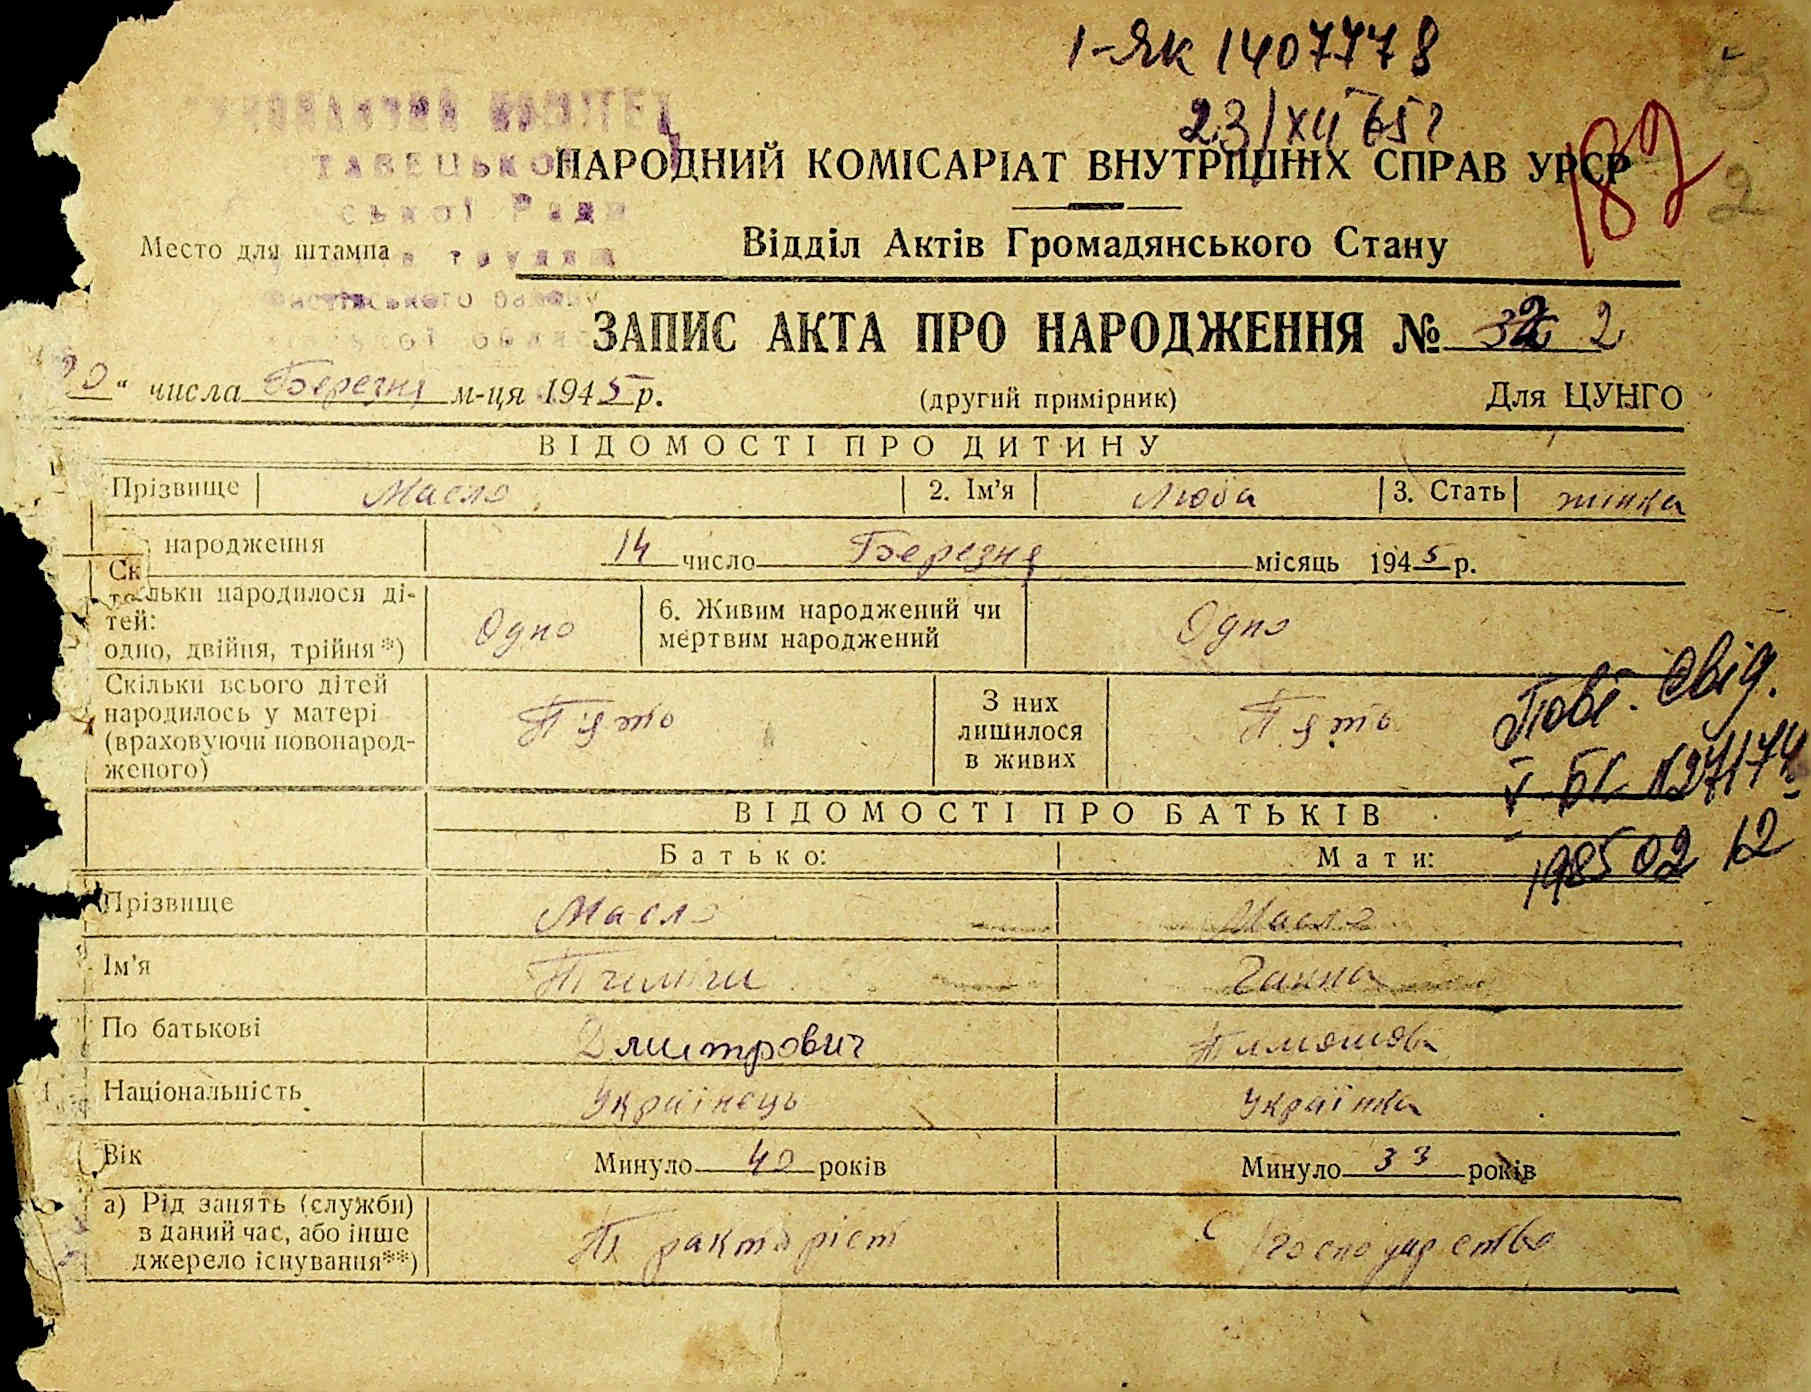 І-ЯК 1407778
23/XII 65г
182
2
ТАВЕЦЬКО
НАРОДНИЙ КОМІСАРІАТ ВНУТРІШНІХ СПРАВ УРСР
ської Ради
Место для штампа
трудящ
Відділ Актів Громадянського Стану
ського
ЗАПИС АКТА ПРО НАРОДЖЕННЯ № 2
20 " числа Березня м-ця 1945 р.
(другий примірник)
Для ЦУНГО
ВІДОМОСТІ ПРО ДИТИНУ
Прізвище Масло 2. Ім'я Люба 3. Стать жінка
народження 14 число Березня місяць 1945 р.
Ск
льки народилося ді-
тей:
одно, двійня, трійня*) Одно
6. Живим народжений чи
мертвим народжений Одно
Скільки всього дітей
народилось у матері
(враховуючи новонарод-
женого) Пять
З них
лишилося
в живих Пять
Повт. свід.
V-БК № 27174
1985 02 12
ВІДОМОСТІ ПРО БАТЬКІВ
Батько: Мати:
Прізвище Масло Масло
Ім'я Ганна
По батькові Дмитрович
Національність Українець Українка
Вік Минуло 40 років Минуло 33 років
а) Рід занять (служби)
в даний час, або інше
джерело існування**) Тракторіст Господарство